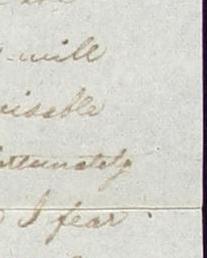 will
visable
ortunately
I fear